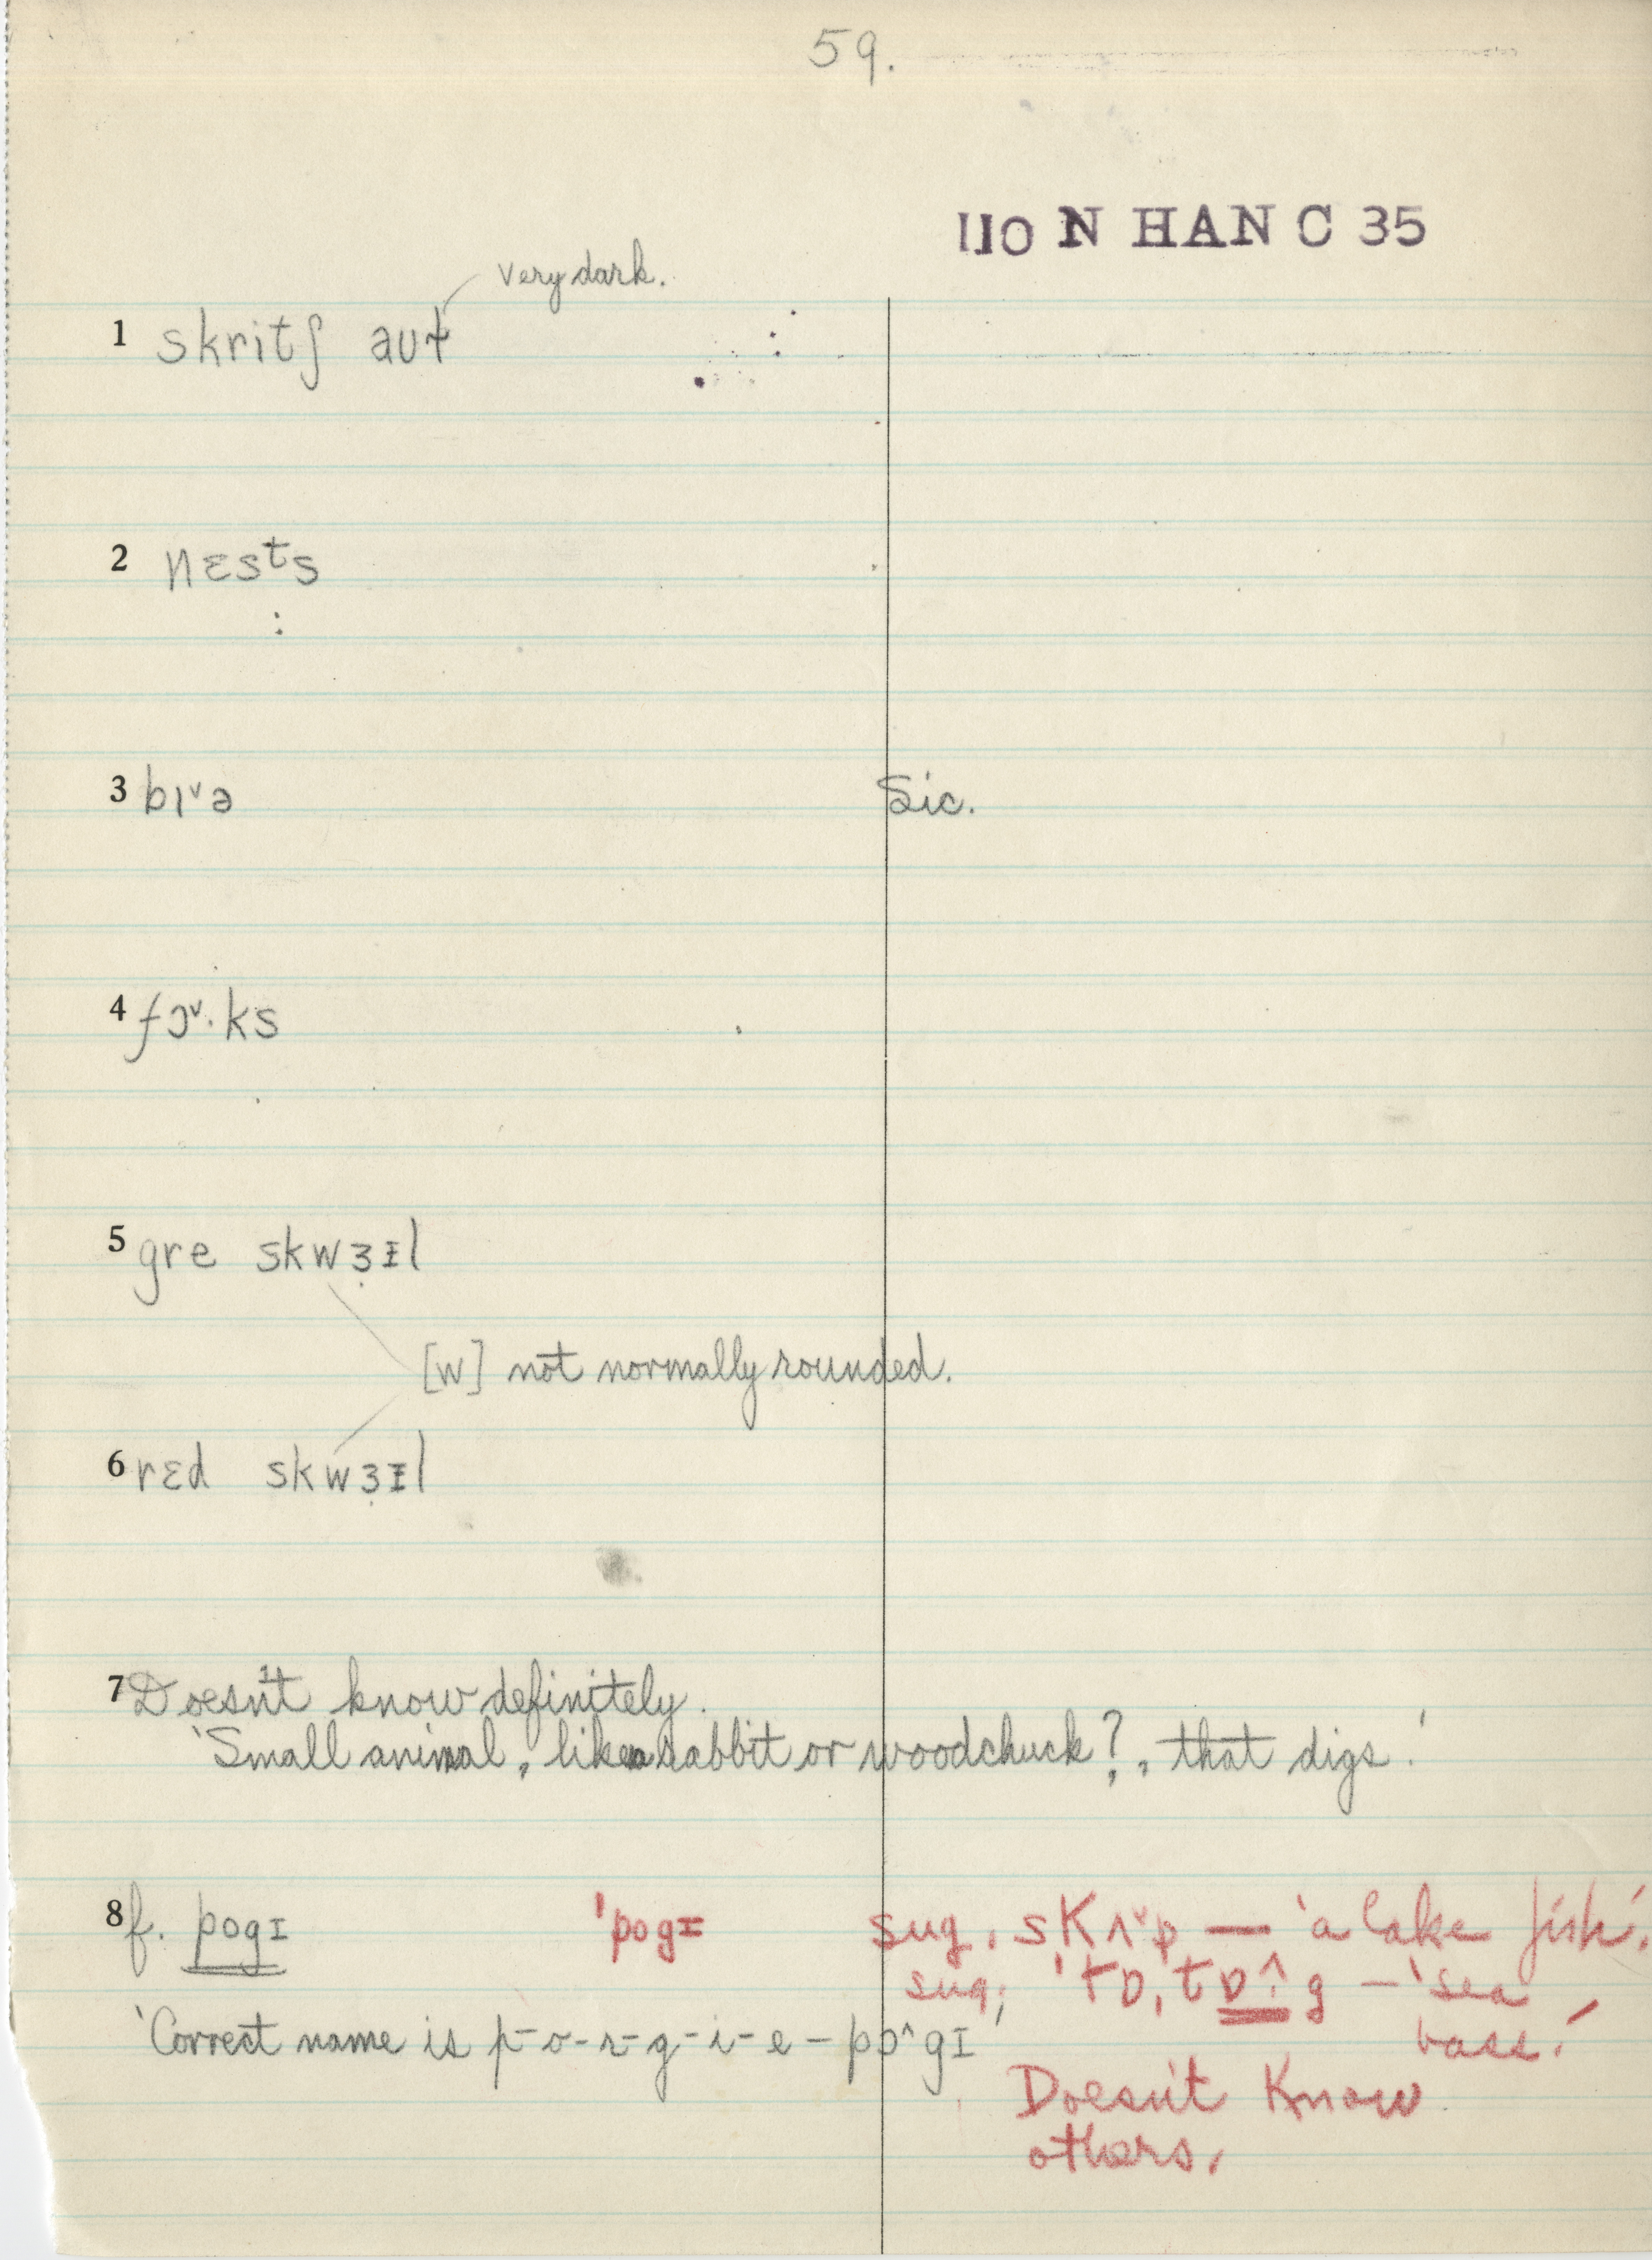 59.
110 N HAN C 35
very dark.
1 skritʃ aʊɫ
2 nɛsᵗs
3 bɪ˅ə Sic.
4 fɔ˅·ks
5 gre skwɜ̣ɪl
[w] not normally rounded.
6 rɛd skwɜ̣ɪl
7 Doesn't know definitely.
'Small animal, like a rabbit or woodchuck?, that digs.'
8 f. pogɪ 'pogɪ sug. sKʌ˅p — 'a lake fish'.
sug. 'tɒ,tɒ^·g — 'sea
bass.'
'Correct name is p-o-r-g-i-e — pɔ^gɪ'
Doesn't Know
others.